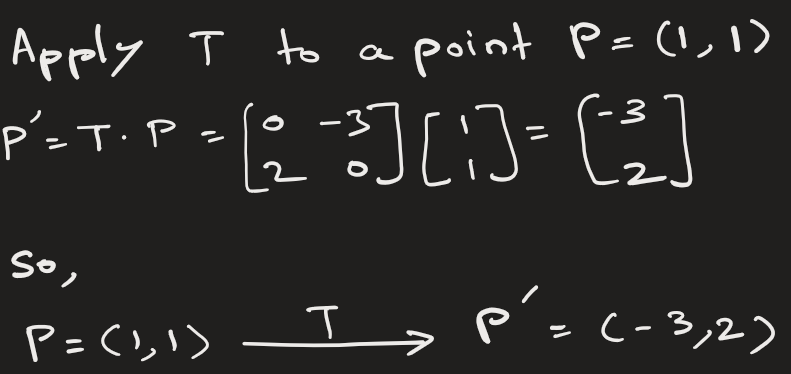 Apply T to a point P = (1, 1)
P' = T · P = [0 -3; 2 0] [1; 1] = [-3; 2]
So,
P = (1, 1) T→ P' = (-3, 2)